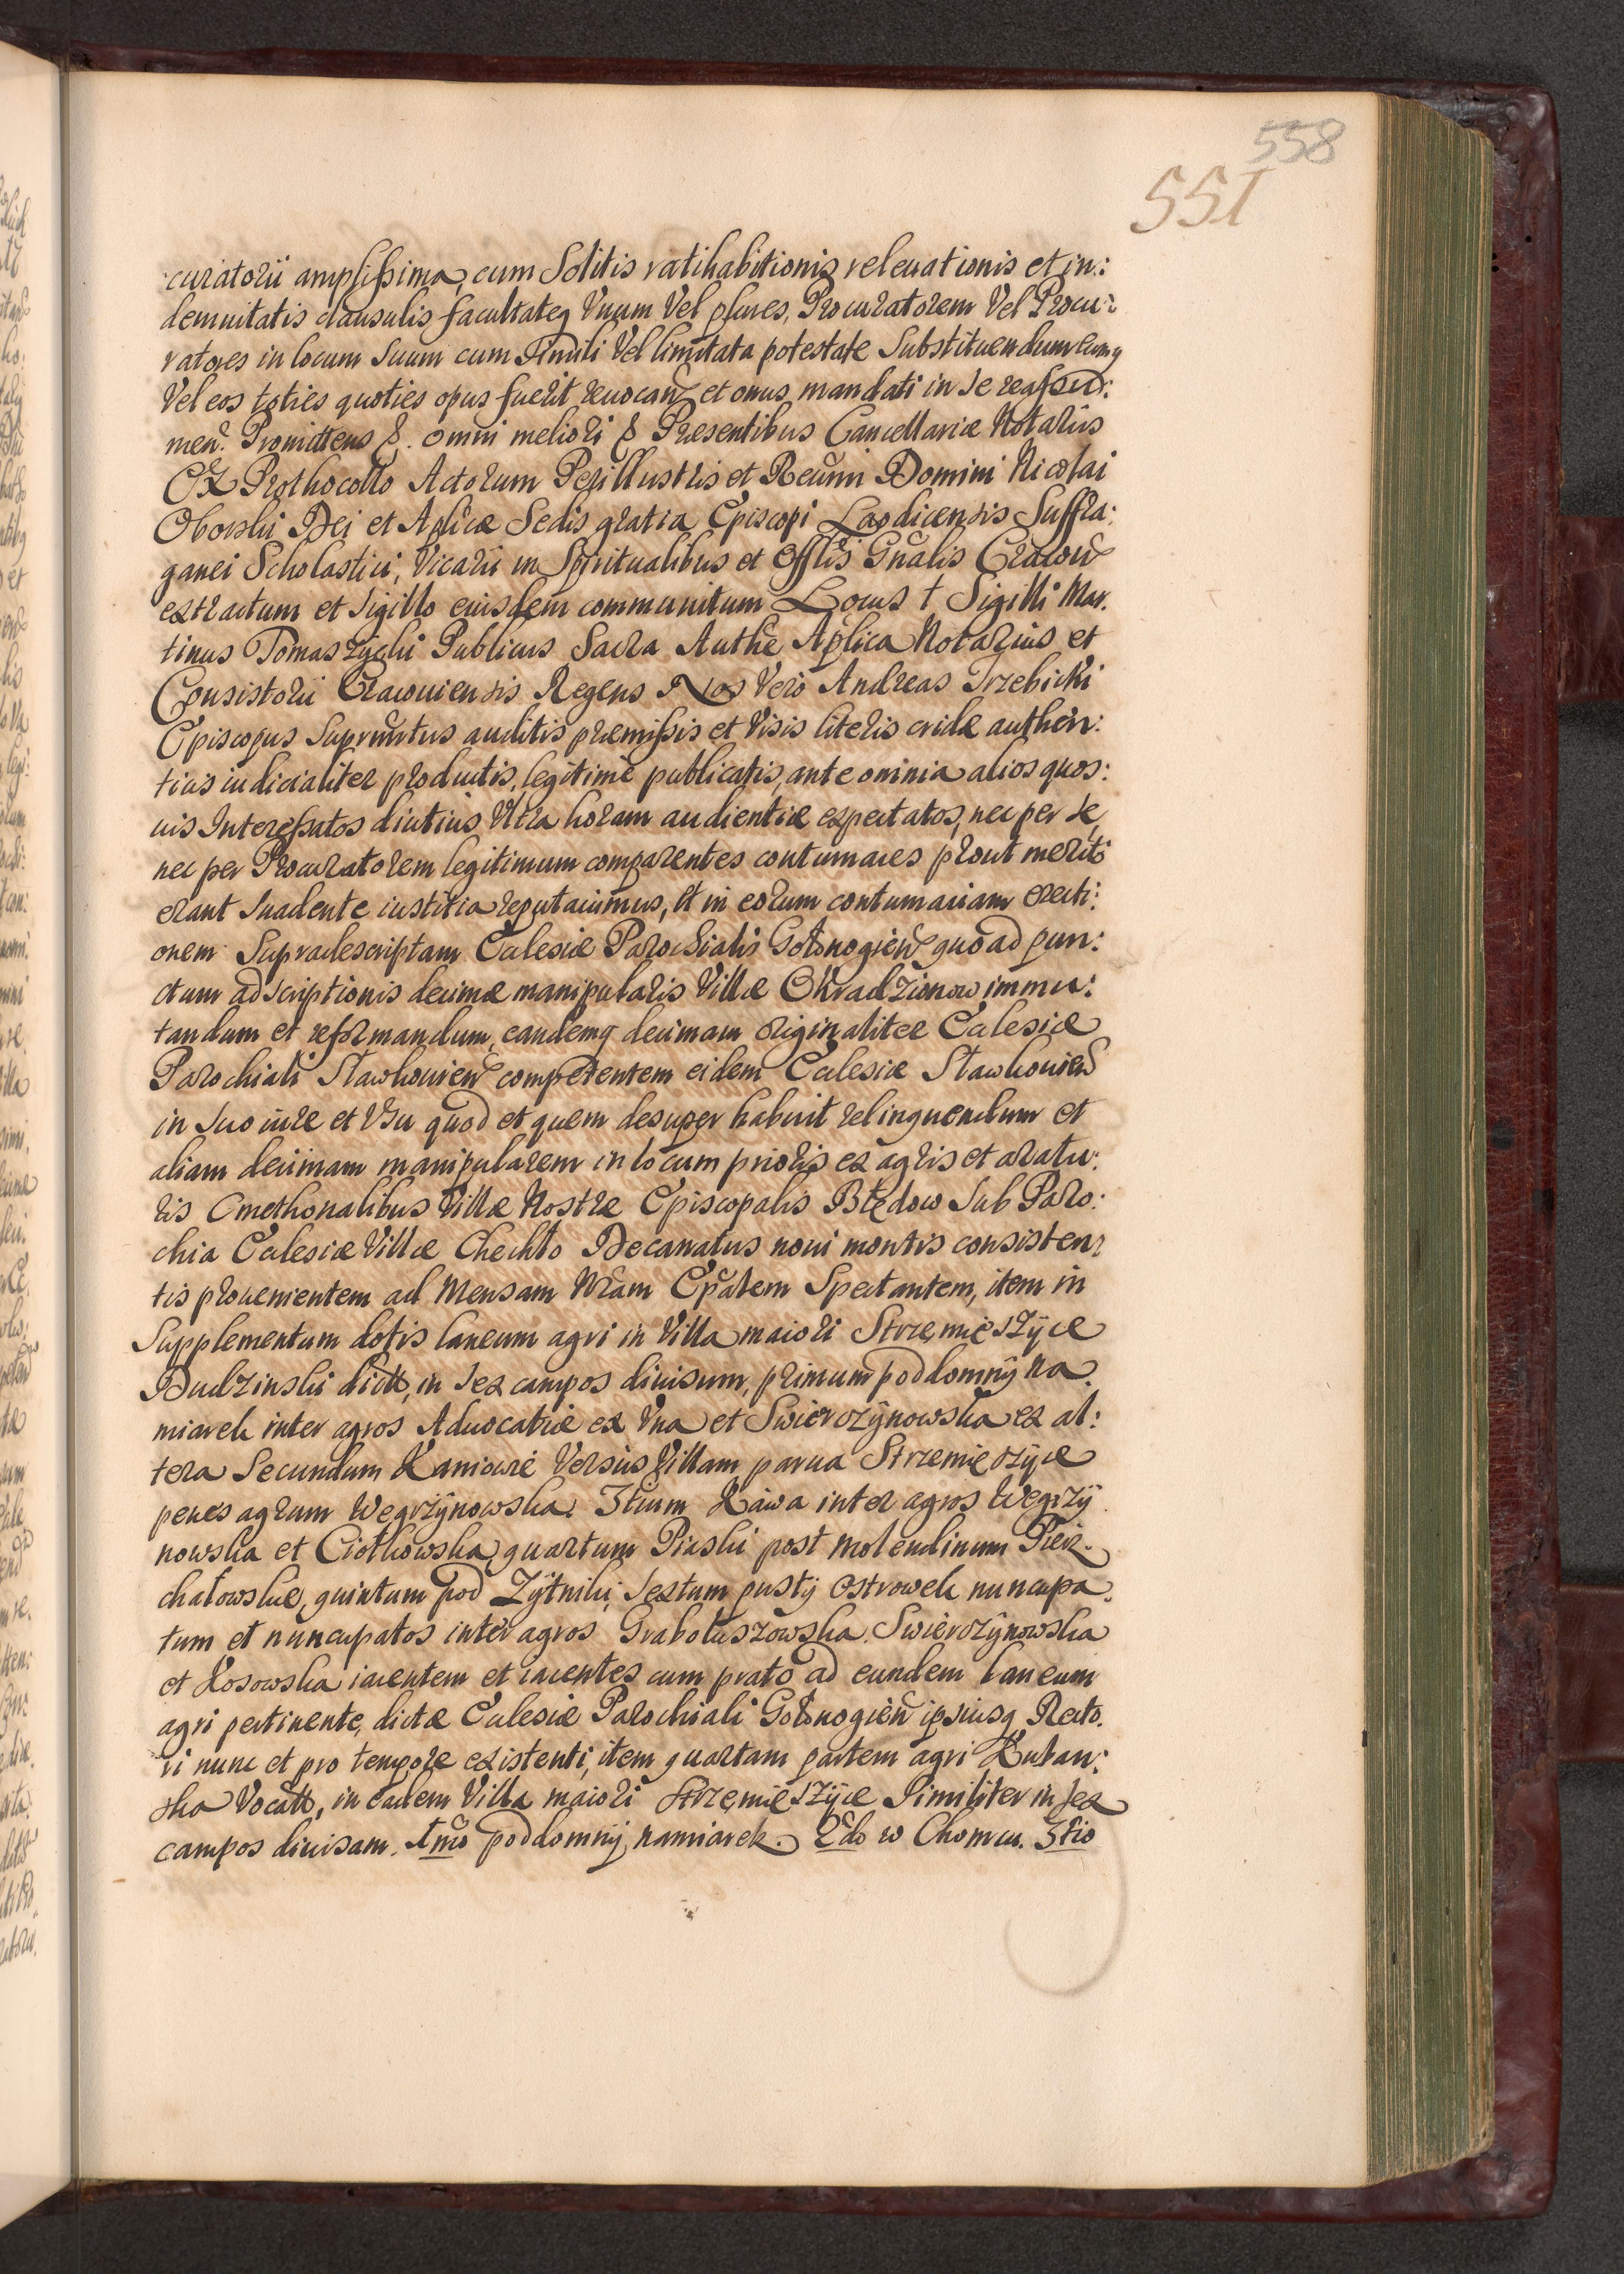 558
551
curatorii amplissima, cum Solitis ratihabitionis releuationis et in:
demnitatis clausulis facultateq Vnum Vel plures, Procuratorem Vel Procu:
ratores in locum Suum cum simili Vel limitata potestate Substituendum eumq
Vel eos toties quoties opus fuerit reuocand et onus mandati in se reassu:
men. Promittens &. omni meliori & Presentibus Cancellariæ Notarius
Ex Prothocollo Actorum Perillustris et Reũmi Domini Nicolai
Oborski Dei et Aplicæ Sedis gratia Episcopi Laodicensis Suffra:
ganei Scholastici, Vicarii in Spiritualibus et Offlis Gnalis Cracoun
extractum et Sigillo eiusdem communitum Locus † Sigilli Mar.
tinus Tomaszÿcki Publicus Sacra Authe Aplica Notarius et
Consistorii Cracouiensis Regens Nos Vero Andreas Trzebicki
Episcopus Supranrtus auditis præmissis et Visis literis eride authen:
ticis iudicialiter productis, legitime publicatis, ante omnia alios quos:
uis Interessatos diutius Vltra horam audientiæ expectatos, nec per se,
nec per Procuratorem legitimum comparentes contumaces prout merito
erant Suadente iustitia reputauimus, et in eorum contumaciam erecti:
onem Supradescriptam Ecclesiæ Parochialis Gołonogien quoad pun:
ctum adscriptionis decimæ manipularis Villæ Okradzionow immu:
tandum et reformandum, eandemq decimam originaliter Ecclesiæ
Parochiali Sławkouien competentem eidem Ecclesiæ Sławkouien
in Suo iure et Vsu quod et quem desuper habuit relinquendum et
aliam decimam manipularem in locum prioris ex agris et aratu:
ris Cmethonalibus Villæ Nostræ Episcopalis Błędow Sub Paro:
chia Ecclesiæ Villæ Chechło Decanatus noui montis consisten:
tis prouenientem ad Mensam Nram Epalem Spectantem, item in
Supplementum dotis laneum agri in Villa maiori Strzemięszÿce
Budzinski dictt, in sex campos diuisum, primum pod domnÿ na
miarek inter agros Aduocatiæ ex Vna et Swierczÿnowska ex al:
tera Secundum Kamowie Versus Villam parua Strzemięszÿce
penes agrum Wegrzÿnowska, 3tium Ława inter agros Wegrzÿ
nowska et Ciołkowska, quartum Piaski post molendinum Piek.
chałowskie, quintum pod Zÿtniki, sextum pustÿ Ostrowek nuncupa:
tum et nuncupatos inter agros Grabołuszowska, Swierczÿnowska
et Kosowska iacentem et iacentes cum prato ad eundem laneum
agri pertinente, dictæ Ecclesiæ Parochiali Gołonogien ipsiusq Recto.
ri nunc et pro tempore existenti, item quartam partem agri Kuban:
ska Vocatt, in eadem Villa maiori Strzemięszÿce similiter in sex
campos diuisam. 1mo pod domnÿ namiarek. 2do w Chomcu. 3tio